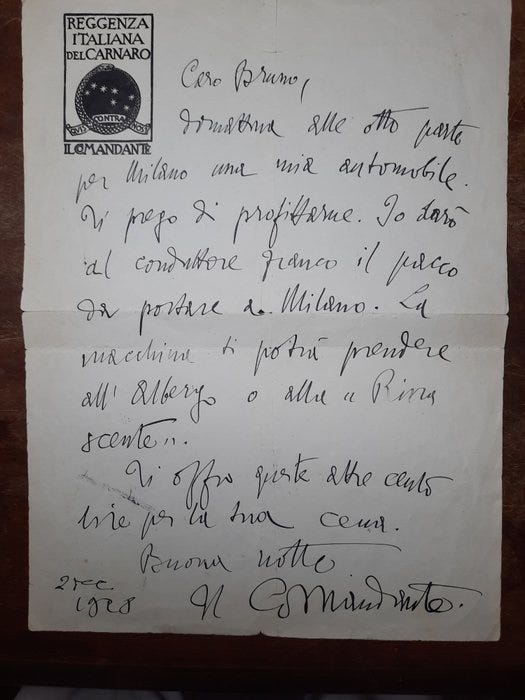 REGGENZA
ITALIANA
DEL CARNARO
QVIS CONTRA NOS
IL COMANDANTE
Caro Bruno,
domattina alle otto parte
per Milano una mia automobile.
Ti prego di profittarne. Io darò
al conduttore Franco il pacco
da portare a Milano. La
macchina ti potrà prendere
all' Albergo o alla "
scente".
Ti offro queste altre cento
lire per la tua cena.
Buona notte
1928
Il Comandante.